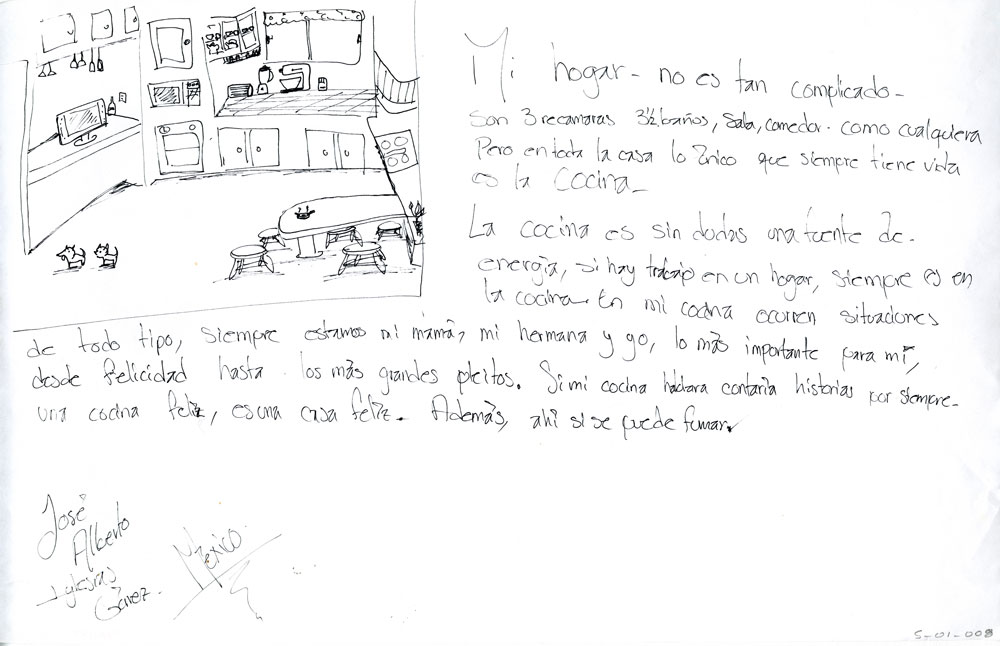 Mi hogar - no es tan complicado -
Son 3 recamaras 3½ baños, sala, comedor. como cualquiera
Pero en toda la casa lo único que siempre tiene vida
es la cocina -
La cocina es sin dudas una fuente de.
energía, si hay trabajo en un hogar, siempre es en
la cocina. En mi cocina ocurren situaciones
de todo tipo, siempre estamos mi mamá, mi hermana y yo, lo más importante para mí,
desde felicidad hasta los más grandes pleitos. Si mi cocina hablara contaría historias por siempre -
una cocina feliz, es una casa feliz. Además, ahí si se puede fumar.
José
Alberto
Iglesias
México
S-01-008